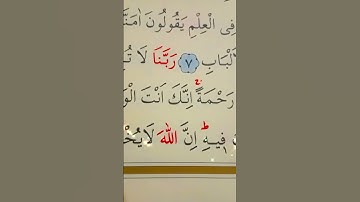 فِي الْعِلْمِ يَقُولُونَ اٰمَنَّا
الْاَلْبَابِ ﴿٧﴾ رَبَّنَا لَا
رَحْمَةً اِنَّكَ اَنْتَ
فِيهِ اِنَّ اللّٰهَ لَا